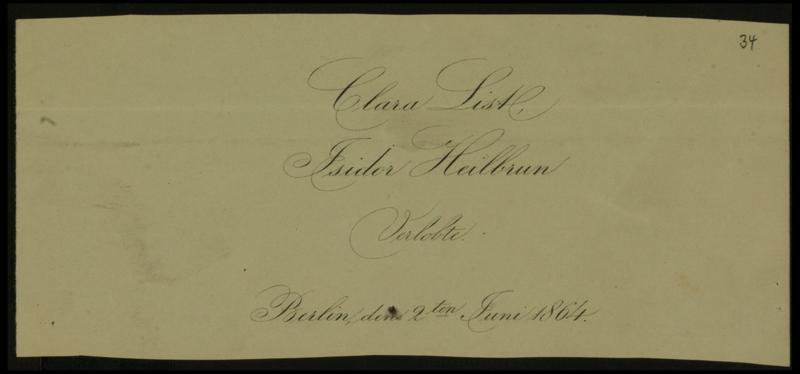 34
Clara List,
Isidor Heilbrun
Verlobte.
Berlin, den 2ten Juni 1864.